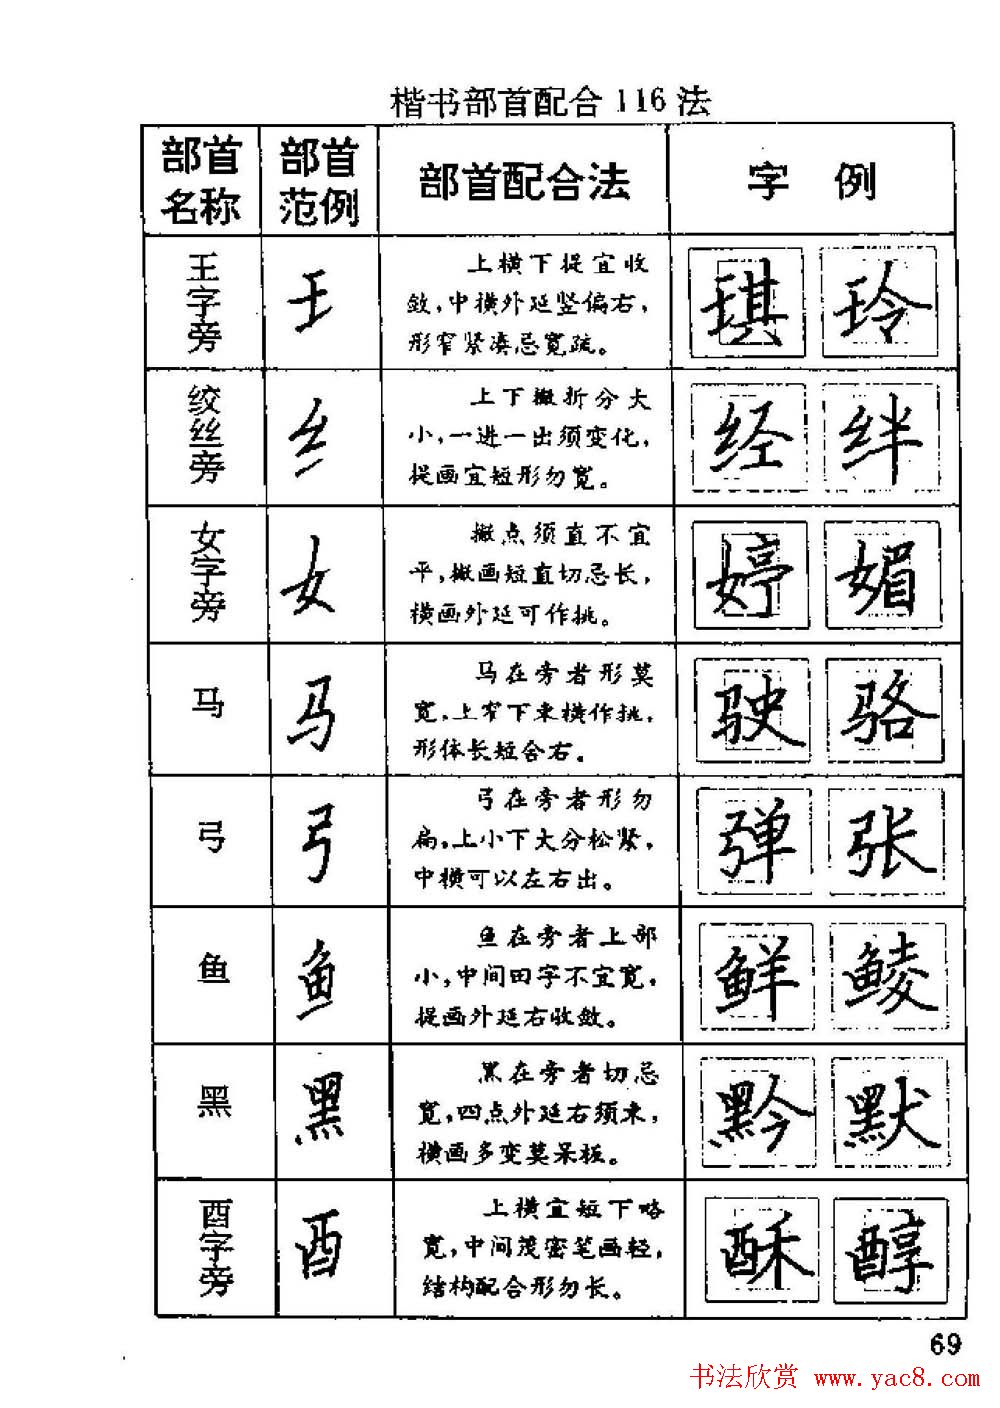 楷书部首配合116法
部首名称 部首范例 部首配合法 字例
王字旁
王
上横下提宜收
敛,中横外延竖偏右,
形窄紧凑忌宽疏。
琪 玲
绞丝旁
纟
上下撇折分大
小,一进一出须变化,
提画宜短形勿宽。
经 绊
女字旁
女
撇点须直不宜
平,撇画短直切忌长,
横画外延可作挑。
婷 媚
马
马
马在旁者形莫
宽,上窄下束横作挑,
形体长短合右。
驶 骆
弓
弓
弓在旁者形勿
扁,上小下大分松紧,
中横可以左右出。
弹 张
鱼
鱼
鱼在旁者上部
小,中间田字不宜宽,
提画外延右收敛。
鲜 鲮
黑
黑
黑在旁者切忌
宽,四点外延右须束,
横画多变莫呆板。
黔 默
酉字旁
酉
上横宜短下略
宽,中间茂密笔画轻,
结构配合形勿长。
酥 醇
69
书法欣赏 www.yac8.com